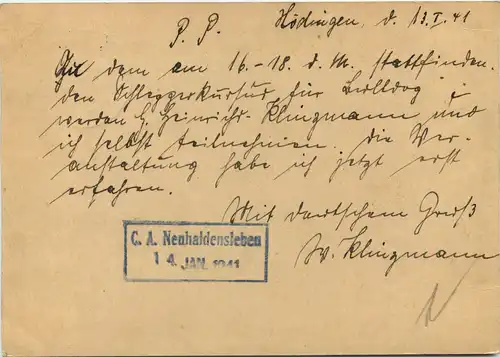 Hödingen, d. 13.I.41
P. P.
Zu dem am 16.-18. d. M. stattfinden-
den Schlepperkursus für Bulldog
werden H. Heinrichs-Klingmann und
ich selbst teilnehmen. Die Ver-
anstaltung habe ich jetzt erst
erfahren.
Mit deutschem Gruß
W. Klingmann
C. A. Neuhaldensleben
14. JAN. 1941